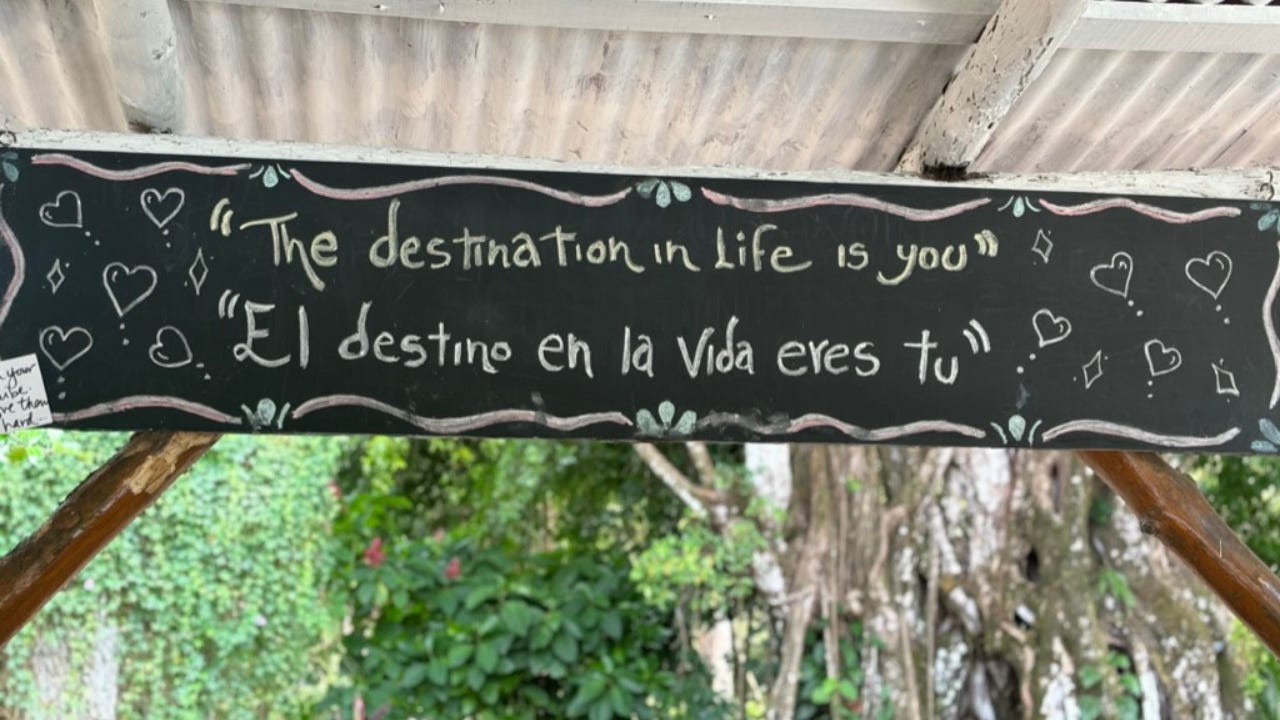 “The destination in Life is you”
“El destino en la Vida eres tu”
your
hard